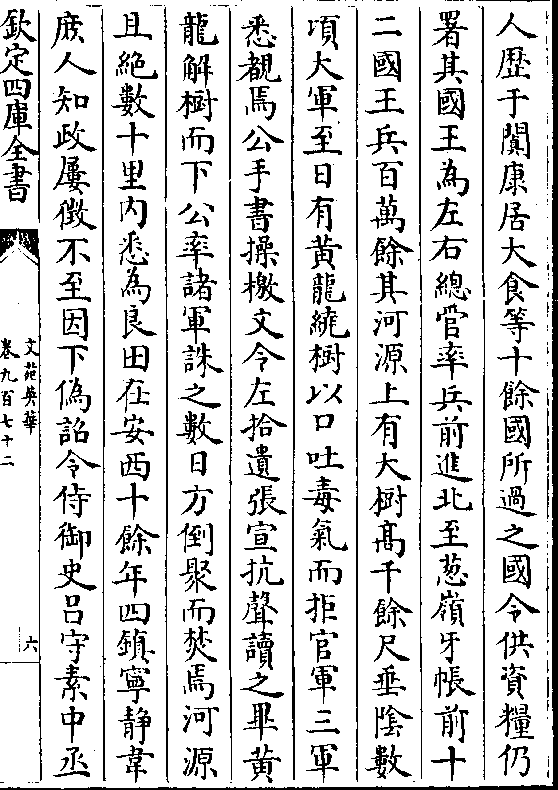 人歴于闐康居大食等十餘國所過之國令供資糧仍
署其國王為左右總管率兵前進北至葱嶺牙帳前十
二國王兵百萬餘其河源上有大樹高千餘尺垂陰數
項大軍至日有黃龍繞樹以口吐毒氣而拒官軍三軍
悉覩焉公手書操檄文令左拾遺張宣抗聲讀之畢黃
龍解樹而下公率諸軍誅之數日方倒聚而焚焉河源
且絶數十里内悉為良田在安西十餘年四鎮寧静韋
庶人知政屢徴不至因下偽詔令侍御史吕守素中丞
欽定四庫全書
文苑英華
卷九百七十二
六